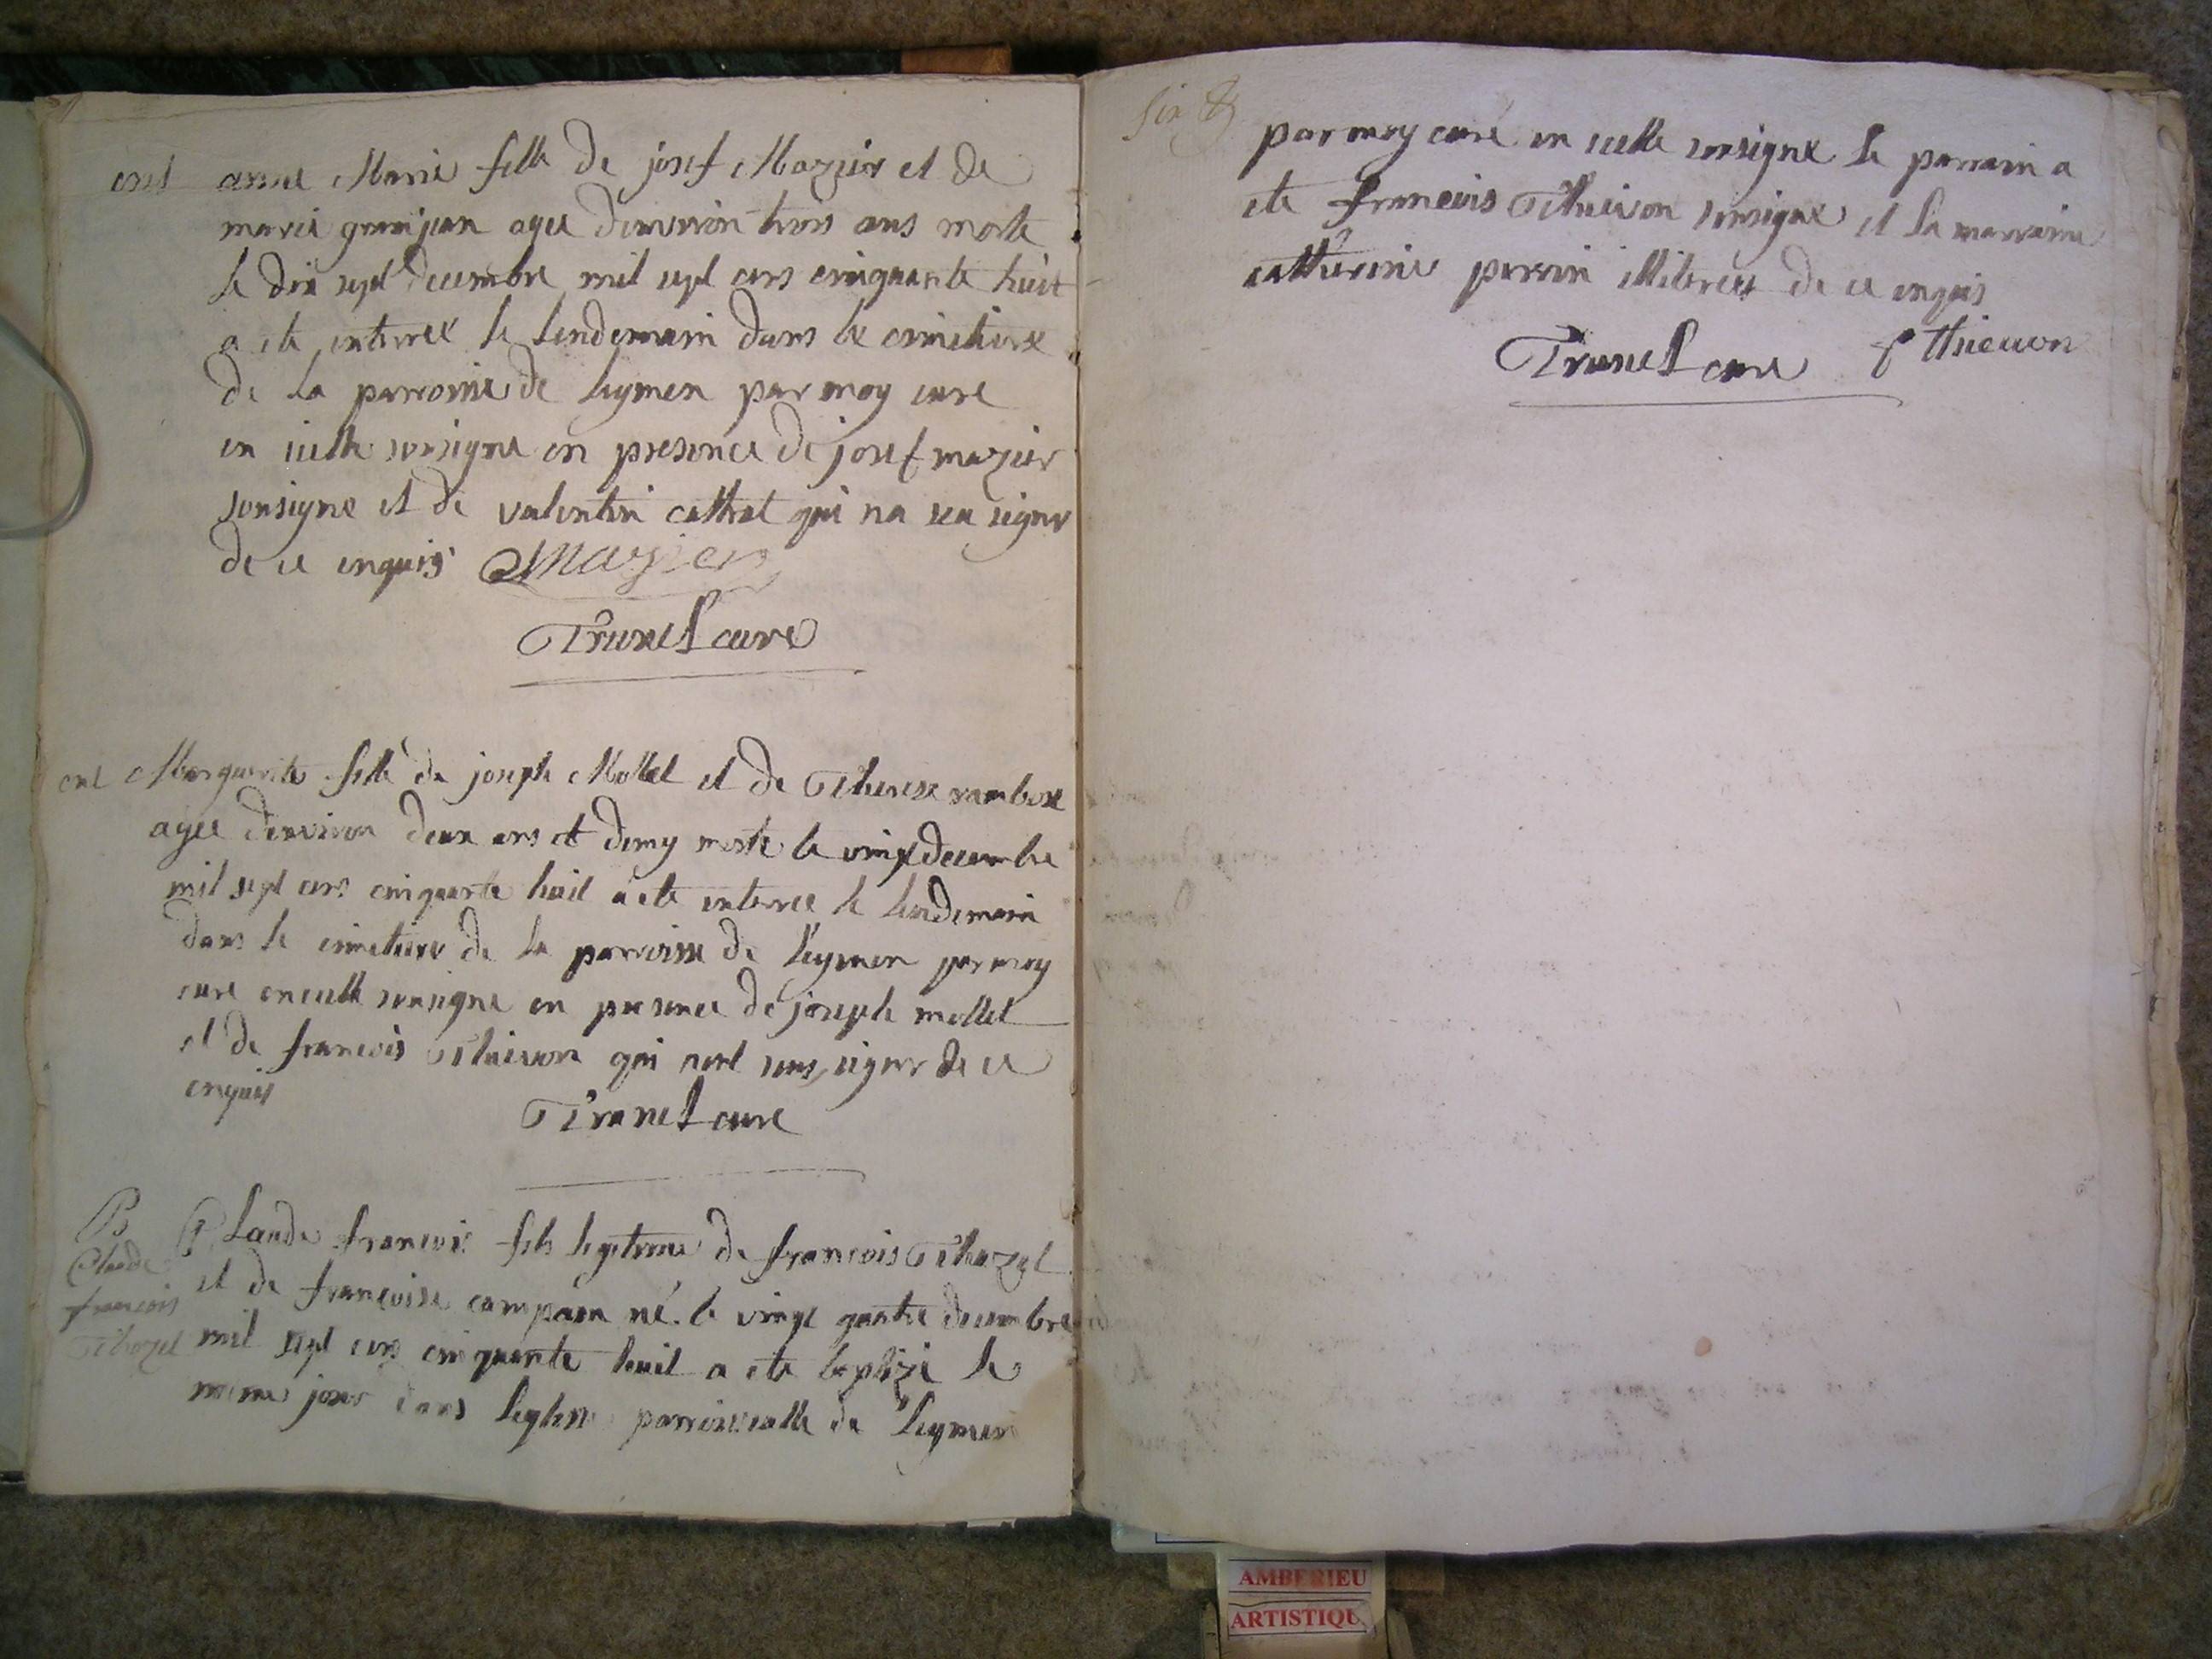 anne Marie fille de josef Mazuir et de
marie granjean agee denviron trois ans morte
le dix sept decembre mil sept cens cinquante huit
a ete enterree le lendemain dans le cimetiere
de la parroisse de leymen par moy cure
en icelle sousigne en presence de josef mazuir
sousigne et de valentin cattret qui na seu signer
de ce enquis Mazier
Trunel cure
Marguerite fille de joseph Mollet et de Therese
agee denviron deux ans et demy morte le vingt decembre
mil sept cens cinquante huit a ete enterree le lendemain
dans le cimetiere de la parroisse de leymen par moy
cure en icelle sousigne en presence de joseph mollet
et de francois Thievon qui nont seus signer de ce
enquis
Trunel cure
B
Claude
francois
Thozel
Claude francois fils legitime de francois Thozel
et de francoise campan né le vingt quatre decembre
mil sept cens cinquante huit a ete baptizé le
meme jour dans leglise parroissialle de leymen
par moy curé en icelle sousigne le parrain a
ete francois Thievon sousigne et la marraine
catherine perrin illiteree de ce enquis
Trunel cure f thievon
AMBERIEU
ARTISTIQU